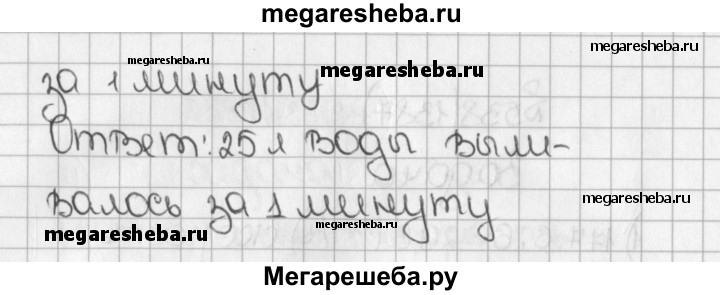 megaresheba.ru
megaresheba.ru
megaresheba.ru
за 1 минуту
megaresheba.ru
Ответ: 25 л воды выли-
валось за 1 минуту
megaresheba.ru
megaresheba.ru
Мегарешеба.ру